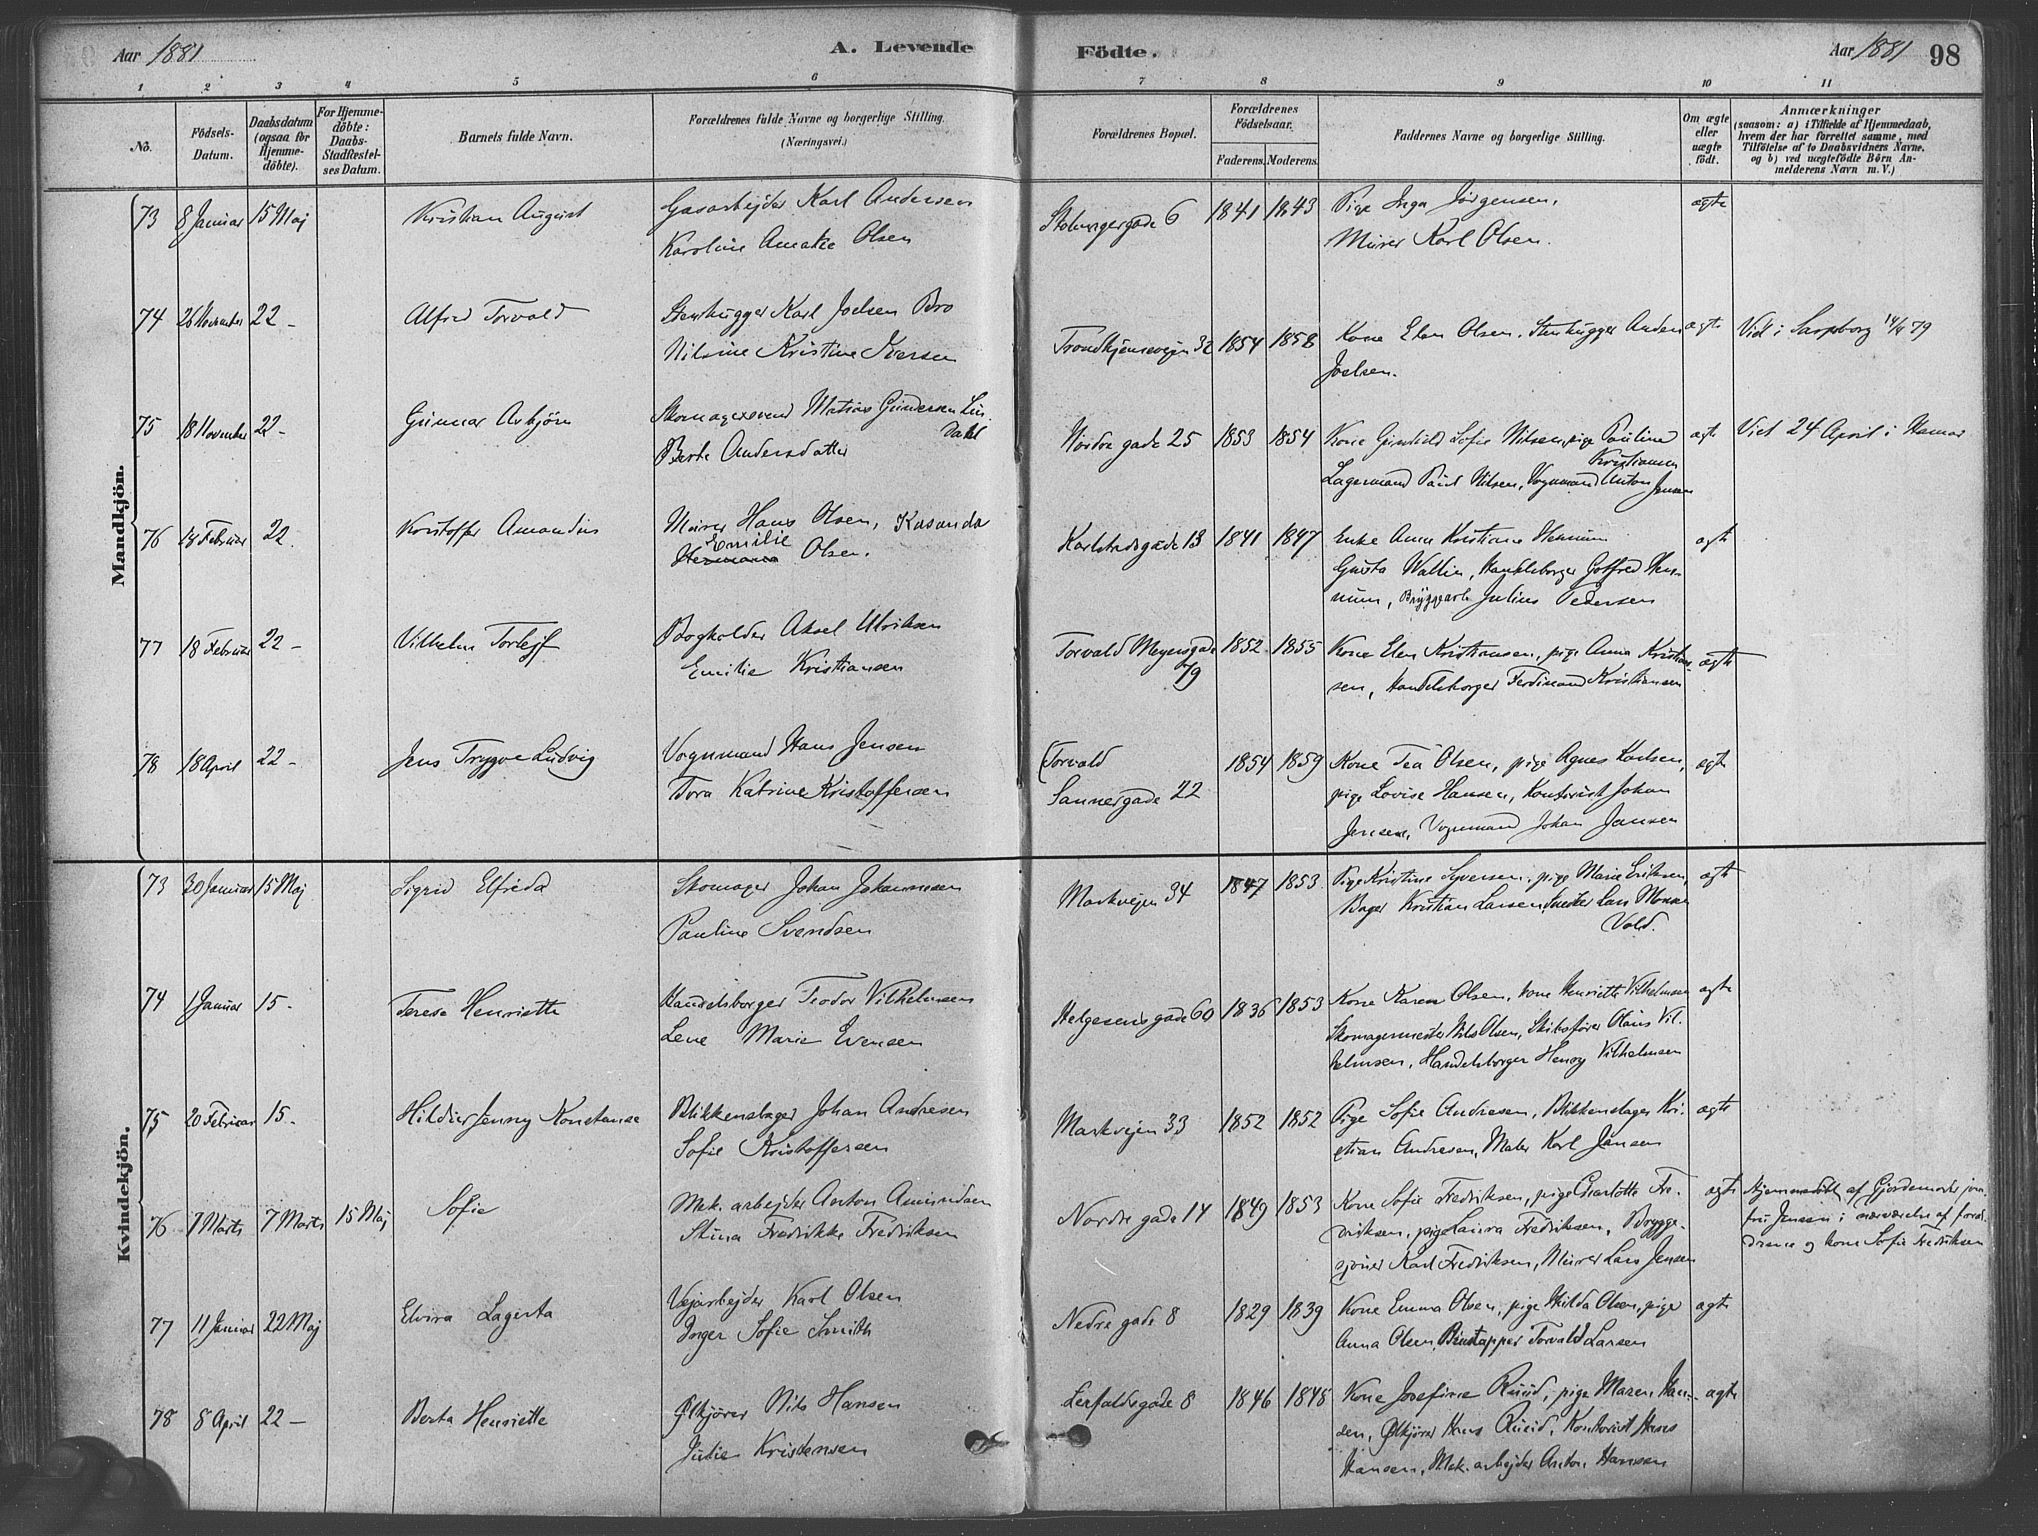 Aar 1881
A. Levende Födte.
Aar 1881 98
1 2 3 4 5 6 7 8 9 10 11
No.
Födsels-Datum.
Daabsdatum (ogsaa for Hjemmedöbte).
For Hjemmedöbte: Daabs-Stadfæstelses Datum.
Barnets fulde Navn.
Forældrenes fulde Navne og borgerlige Stilling.
(Næringsvei.)
Forældrenes Bopæl.
Forældrenes Födselsaar.
Faderens. Moderens.
Faddernes Navne og borgerlige Stilling.
Om ægte eller uægte födt.
Anmærkninger
(saasom: a) i Tilfælde af Hjemmedaab, hvem der har forrettet samme, med Tilföielse af to Daabsvidners Navne. og b) ved uægtefödte Börn Anmelderens Navn m. V.)
Mandkjön.
73 8 Januar 15 Maj Kristian August Gasarbejder Karl Andersen 6 1841 1843 Pige Inga Jørgensen, ægte
Karoline Amalie Olsen
Murer Karl Olsen.
74 26 November 22 - Alfred Torvald Stenhugger Karl Joelsen Bro Trondhjemsvejen 32 1854 1858 Kone Elen Olsen. Stenhugger Anders ægte Viet i Sarpsborg 79
Nilsine Kristine Iversen
Joelsen.
75 18 November 22 - Gunnar Arbjørn Skomagersvend Matias Gundersen Lin-
dahl
Nordre gade 25 1853 1854 Kone Sofie Nilsen, pige Pauline ægte Viet 24 April i Hamar
Berte Andersdatter
Kristiansen
Lagermand Paul Nilsen, Vognmand Anton Jensen
76 18 Februar 22. Kristoffer Amandus Murer Hans Olsen, Kasanda Karlstadsgade 13 1841 1847 Enke Anna Kristiane Hennum ægte
Emilie
Olsen.
Gusta Wallin, Handelsborger Gotfred Hen-
num, Bryggearb Julius Pedersen
77 18 Februar 22 - Vilhelm Torlejf Bogholder Aksel Ulriksen Torvald Meyersgade 1852 1855 Kone Elen Kristiansen, pige Anna Kristian- ægte
Emilie Kristiansen 79
sen, Handelsborger Ferdinand Kristiansen
78 18 April 22 - Jens Trygve Ludvig Vognmand Hans Jensen (Torvald 1854 1859 Kone Tea Olsen, pige Agnes Karlsen, ægte
Tora Katrine Kristoffersen Sannergade 22
pige Lovise Hansen, Kontorist Johan
Jensen, Vognmand Johan Jansen
Kvindekjön.
73 30 Januar 15 Maj Sigrid Elfrida Skomager Johan Johannesen Markvejen 34 1847 1853 Pige Kristine Syversen, pige Marie Eriksen, ægte
Pauline Svendsen
Bager Kristian Larsen, Snedker Lars Monsen
Vold.
74 1 Januar 15 - Terese Henriette Handelsborger Teodor Vilhelmsen Helgesensgade 60 1836 1853 Kone Karen Olsen, kone Henriette Vilhelmsen ægte
Lene Marie Evensen
Skomagermester Nils Olsen, Skibsfører Olaus Vil-
helmsen, Handelsborger Henry Vilhelmsen
75 20 Februar 15 - Jenny Konstanse Blikkenslager Johan Andresen Markvejen 33 1852 1852 Pige Sofie Andresen, Blikkenslager Kri- ægte
Sofie Kristoffersen
stian Andresen, Maler Karl Jansen
76 7 Marts 7 Marts 15 Maj Sofie Mek. arbejder Anton Amundsen Nordre gade 14 1849 1853 Kone Sofie Fredriksen, pige Charlotte Fre- ægte Hjemmedöbt af Gjordemoder jom-
Stina Fredrikke Fredriksen
driksen, pige Laura Fredriksen, Brygge- fru Jensen i nærværelse af foræl-
sjouer Karl Fredriksen, Murer Lars Jensen drene og kone Sofie Fredriksen
77 11 Januar 22 Maj Elvira Lagerta Vejarbejder Karl Olsen Nedre gade 8 1829 1839 Kone Emma Olsen, pige Hilda Olsen, pige ægte
Inger Sofie Smith
Anna Olsen, Torvald Larsen
78 8 April 22 - Berta Henriette Ølkjører Nils Hansen Lerfaldsgade 8 1846 1848 Kone Josefine Ruud, pige Maren Han- ægte
Julie Kristensen
sen, Ølkjører Hans Ruud, Kontorist Hans
Hansen, Mek. arbejder Anton Hansen